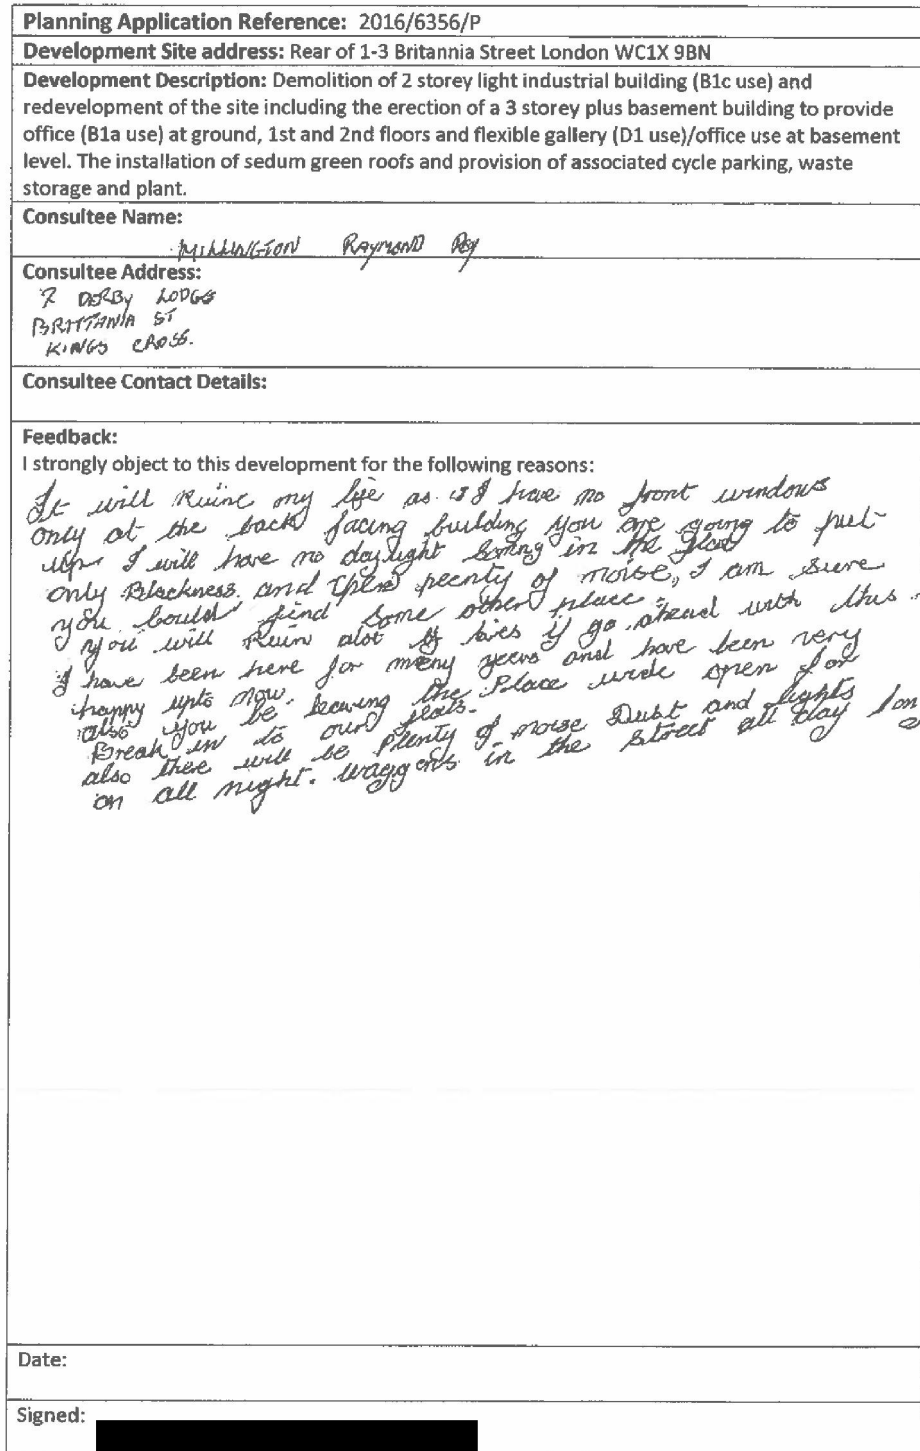 Planning Application Reference: 2016/6356/P
Development Site address: Rear of 1-3 Britannia Street London WC1X 9BN
Development Description: Demolition of 2 storey light industrial building (B1c use) and
redevelopment of the site including the erection of a 3 storey plus basement building to provide
office (B1a use) at ground, 1st and 2nd floors and flexible gallery (D1 use)/office use at basement
level. The installation of sedum green roofs and provision of associated cycle parking, waste
storage and plant.
Consultee Name:
MILLINGTON RAYMOND
Consultee Address:
7 DERBY LODGE
BRITTANIA ST
KINGS CROSS.
Consultee Contact Details:
Feedback:
I strongly object to this development for the following reasons:
It will Ruine my life as I have no front windows
only at the back facing building you are going to put
up. I will have no daylight in the
only Blackness. and plenty of noise, I am sure
you could find some other place.
you will Ruin alot of if go ahead with this
I have been here for many years and have been very
happy upto now.
also you be leaving the Place wide open for
Break in to our flats.
also there will be Plenty of noise Dust and lights
on all night. waggons in the street all day
Date:
Signed: